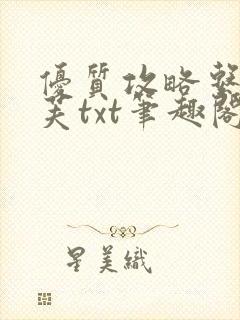 優質攻略整
芙txt筆趣閣
星美織